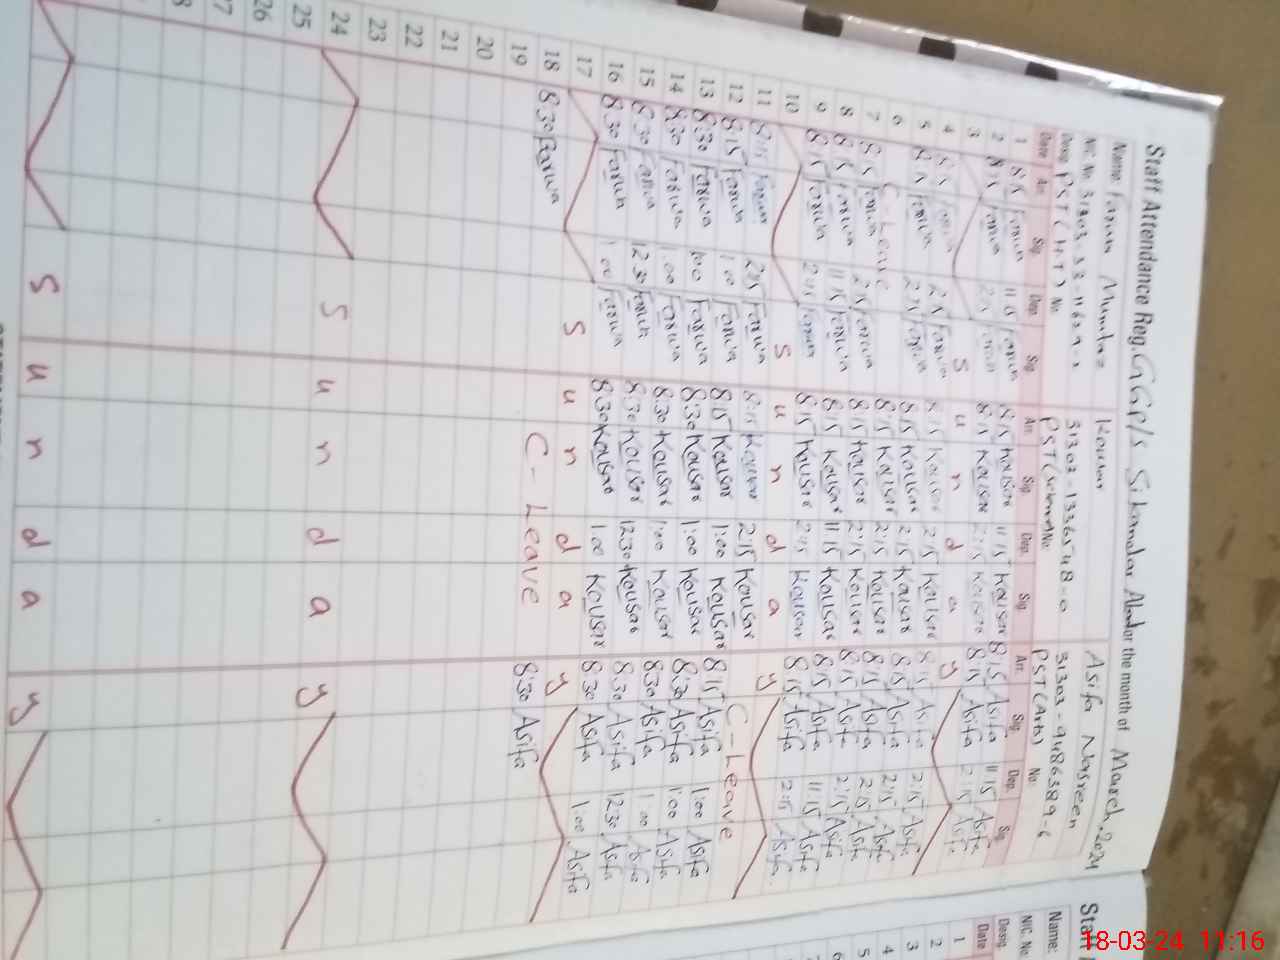 Staff Attendance Reg. GGP/S Sikandar Abad for the month of March, 2024
Name: Farwa Mumtaz Kousar Asifa Nasreen
NIC. No. 31303-1336548-0 31303-9486389-6
Desig. PST No. PST (science) No. PST (Arts) No.
Date Arr. Sig. Dep. Sig. Arr. Sig. Dep. Sig. Arr. Sig. Dep. Sig.
1 8:15 Farwa 11:15 Farwa 8:15 Kousar 11:15 Kousar 8:15 Asifa 11:15 Asifa
2 8:15 Farwa 2:15 Farwa 8:15 Kousar 2:15 Kousar 8:15 Asifa 2:15 Asifa
3 S u n d a y
4 8:15 Farwa 2:15 Farwa 8:15 Kousar 2:15 Kousar 8:15 Asifa 2:15 Asifa
5 8:15 Farwa 2:15 Farwa 8:15 Kousar 2:15 Kousar 8:15 Asifa 2:15 Asifa
6 C-Leave 8:15 Kousar 2:15 Kousar 8:15 Asifa 2:15 Asifa
7 8:15 Farwa 2:15 Farwa 8:15 Kousar 2:15 Kousar 8:15 Asifa 2:15 Asifa
8 8:15 Farwa 11:15 Farwa 8:15 Kousar 11:15 Kousar 8:15 Asifa 11:15 Asifa
9 8:15 Farwa 2:15 Farwa 8:15 Kousar 2:15 Kousar 8:15 Asifa 2:15 Asifa
10 S u n d a y
11 8:15 Farwa 2:15 Farwa 8:15 Kousar 2:15 Kousar C-Leave
12 8:15 Farwa 1:00 Farwa 8:15 Kousar 1:00 Kousar 8:15 Asifa 1:00 Asifa
13 8:30 Farwa 1:00 Farwa 8:30 Kousar 1:00 Kousar 8:30 Asifa 1:00 Asifa
14 8:30 Farwa 1:00 Farwa 8:30 Kousar 1:00 Kousar 8:30 Asifa 1:00 Asifa
15 8:30 Farwa 12:30 Farwa 8:30 Kousar 12:30 Kousar 8:30 Asifa 12:30 Asifa
16 8:30 Farwa 1:00 Farwa 8:30 Kousar 1:00 Kousar 8:30 Asifa 1:00 Asifa
17 S u n d a y
18 8:30 Farwa C-Leave 8:30 Asifa
19
20
21
22
23
24 S u n d a y
25
26
S u n d a y
Staff
Name:
NIC. No.
Desig.
Date
1
2
3
4
5
6
18-03-24 11:16